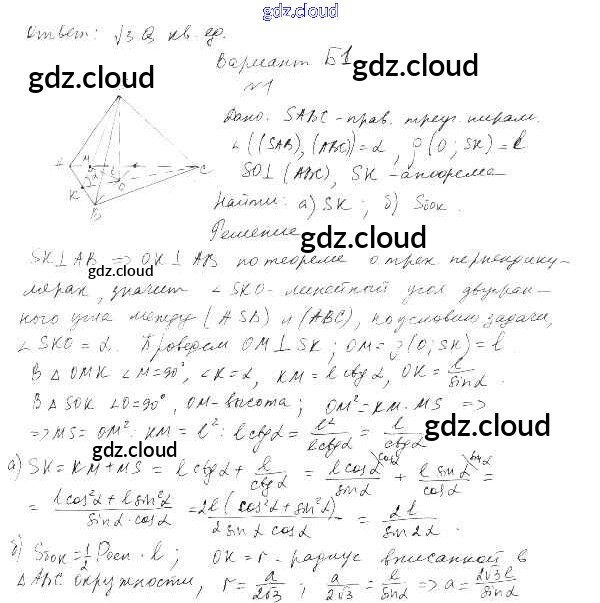 gdz.cloud
Ответ: √3 Q кв. ед.
Вариант Б1
gdz.cloud
gdz.cloud
№1
Дано: SABC - прав. треуг. пирам.
∠((SAB), (ABC)) = α, ρ(O; SK) = l
gdz.cloud
gdz.cloud
SO⊥(ABC), SK - апофема
Найти: а) SK; б) Sбок.
Решение
gdz.cloud
SK⊥AB => OK⊥AB по теореме о трех перпендику-
gdz.cloud
лярах, значит ∠SKO - линейный угол двугран-
ного угла между (ASB) и (ABC), по условию задачи,
∠SKO = α. Проведем OM⊥SK; OM = ρ(O; SK) = l.
В △OMK ∠M=90°, ∠K=α, KM = l ctgα, OK = l/sinα.
В △SOK ∠O=90°, OM - высота; OM² = KM·MS =>
gdz.cloud
gdz.cloud
=> MS = OM² : KM = l² : l ctgα = l²/l ctgα = l/ctgα
а) SK = KM + MS = l ctgα + l/ctgα = l cosα/sinα + l sinα/cosα =
= (l cos²α + l sin²α)/(sinα · cosα) = 2l(cos²α + sin²α)/(2 sinα cosα) = 2l/sin2α.
gdz.cloud
gdz.cloud
б) Sбок = 1/2 Pосн · l; OK = r - радиус вписанной в
△ABC окружности, r = a/2√3; a/2√3 = l/sinα => a = 2√3 l/sinα